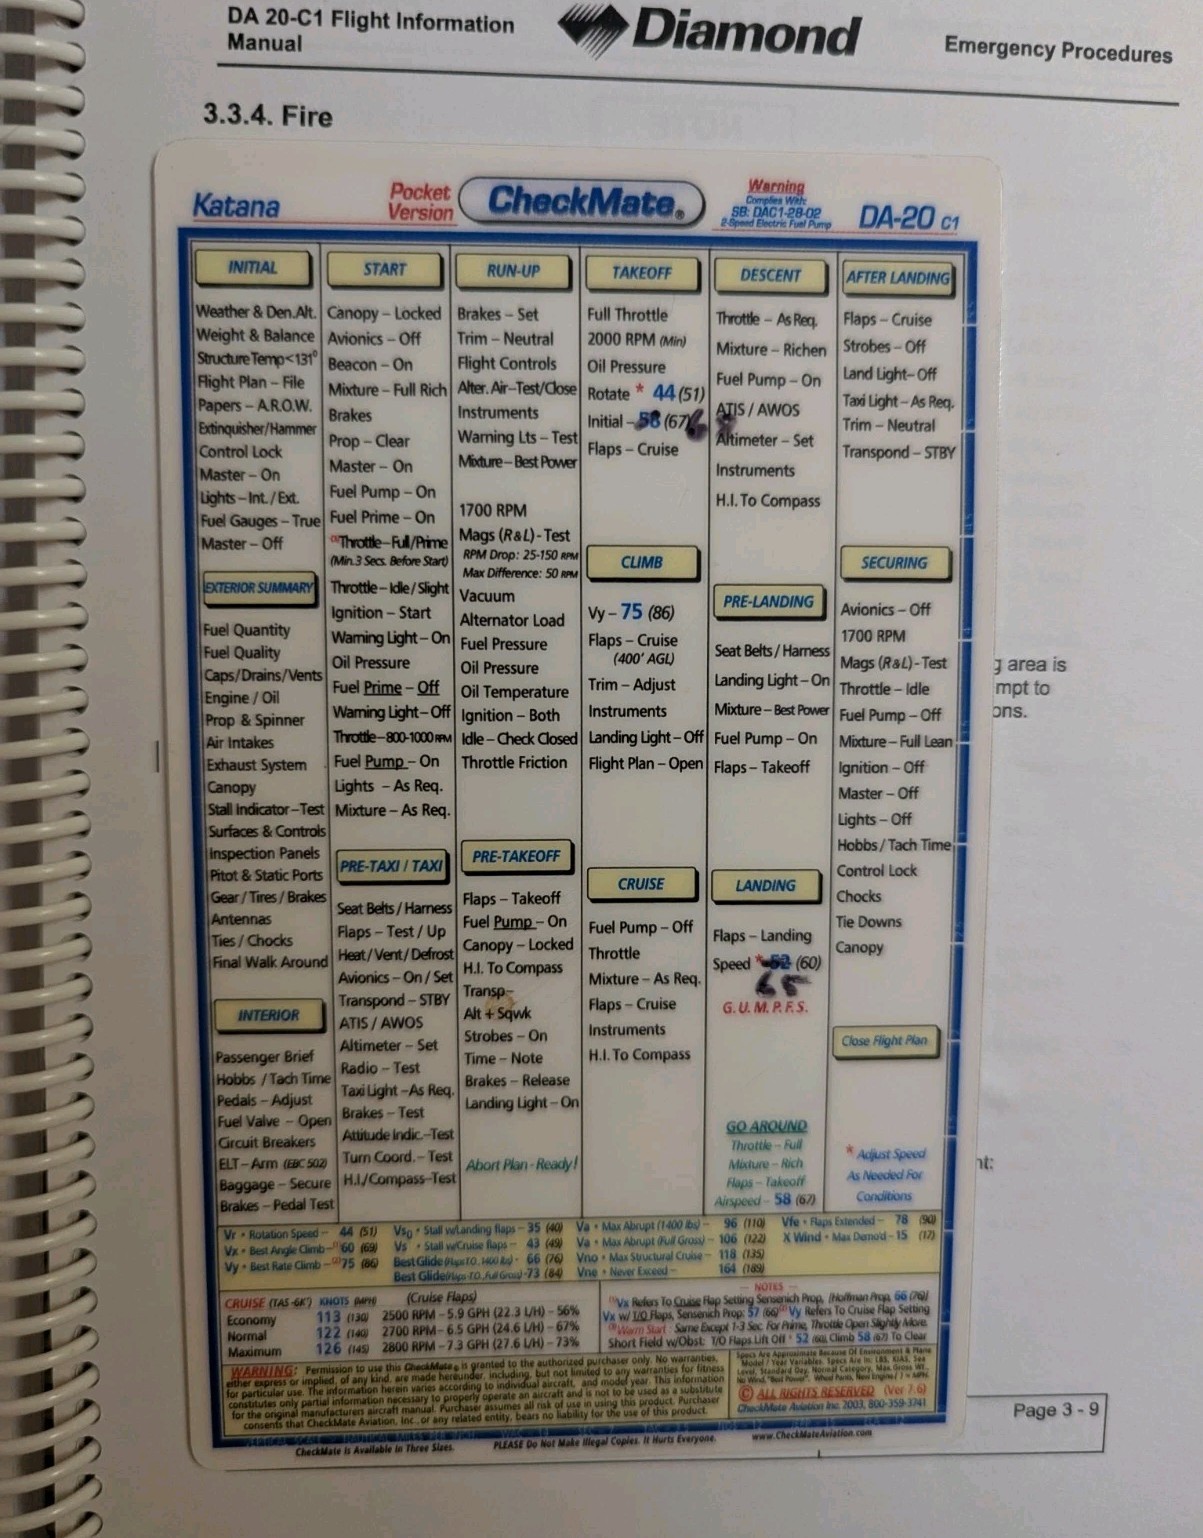 DA 20-C1 Flight Information
Manual
Diamond
Emergency Procedures
3.3.4. Fire
Katana
Pocket
Version
CheckMate®
Warning
Complies With:
SB: DAC1-28-02
2-Speed Electric Fuel Pump
DA-20 C1
INITIAL
Weather & Den.Alt.
Weight & Balance
Structure Temp<131°
Flight Plan – File
Papers – A.R.O.W.
Extinquisher/Hammer
Control Lock
Master – On
Lights – Int. / Ext.
Fuel Gauges – True
Master – Off
EXTERIOR SUMMARY
Fuel Quantity
Fuel Quality
Caps/Drains/Vents
Engine / Oil
Prop & Spinner
Air Intakes
Exhaust System
Canopy
Stall Indicator–Test
Surfaces & Controls
Inspection Panels
Pitot & Static Ports
Gear / Tires / Brakes
Antennas
Ties / Chocks
Final Walk Around
INTERIOR
Passenger Brief
Hobbs / Tach Time
Pedals – Adjust
Fuel Valve – Open
Circuit Breakers
ELT – Arm (EBC 502)
Baggage – Secure
Brakes – Pedal Test
START
Canopy – Locked
Avionics – Off
Beacon – On
Mixture – Full Rich
Brakes
Prop – Clear
Master – On
Fuel Pump – On
Fuel Prime – On
Throttle–Full/Prime
(Min.3 Secs. Before Start)
Throttle–Idle/Slight
Ignition – Start
Warning Light–On
Oil Pressure
Fuel Prime – Off
Warning Light–Off
Throttle–800-1000 RPM
Fuel Pump – On
Lights – As Req.
Mixture – As Req.
PRE-TAXI / TAXI
Seat Belts / Harness
Flaps – Test / Up
Heat/Vent/Defrost
Avionics – On / Set
Transpond – STBY
ATIS / AWOS
Altimeter – Set
Radio – Test
Taxi Light –As Req.
Brakes – Test
Attitude Indic.–Test
Turn Coord. – Test
H.I./Compass–Test
RUN-UP
Brakes – Set
Trim – Neutral
Flight Controls
Alter. Air–Test/Close
Instruments
Warning Lts – Test
Mixture–Best Power
1700 RPM
Mags (R&L) - Test
RPM Drop: 25-150 RPM
Max Difference: 50 RPM
Vacuum
Alternator Load
Fuel Pressure
Oil Pressure
Oil Temperature
Ignition – Both
Idle – Check Closed
Throttle Friction
PRE-TAKEOFF
Flaps – Takeoff
Fuel Pump – On
Canopy – Locked
H.I. To Compass
Transp–
Alt + Sqwk
Strobes – On
Time – Note
Brakes – Release
Landing Light – On
Abort Plan - Ready!
TAKEOFF
Full Throttle
2000 RPM (Min)
Oil Pressure
Rotate * 44 (51)
Initial – 58 (67)
Flaps – Cruise
CLIMB
Vy – 75 (86)
Flaps – Cruise
(400' AGL)
Trim – Adjust
Instruments
Landing Light – Off
Flight Plan – Open
CRUISE
Fuel Pump – Off
Throttle
Mixture – As Req.
Flaps – Cruise
Instruments
H.I. To Compass
DESCENT
Throttle – As Req.
Mixture – Richen
Fuel Pump – On
ATIS / AWOS
Altimeter – Set
Instruments
H.I. To Compass
PRE-LANDING
Seat Belts / Harness
Landing Light – On
Mixture – Best Power
Fuel Pump – On
Flaps – Takeoff
LANDING
Flaps – Landing
Speed * 52 (60)
65
G.U.M.P.F.S.
GO AROUND
Throttle – Full
Mixture – Rich
Flaps – Takeoff
Airspeed – 58 (67)
AFTER LANDING
Flaps – Cruise
Strobes – Off
Land Light– Off
Taxi Light – As Req.
Trim – Neutral
Transpond – STBY
SECURING
Avionics – Off
1700 RPM
Mags (R&L) - Test
Throttle – Idle
Fuel Pump – Off
Mixture – Full Lean
Ignition – Off
Master – Off
Lights – Off
Hobbs / Tach Time
Control Lock
Chocks
Tie Downs
Canopy
Close Flight Plan
* Adjust Speed
As Needed For
Conditions
g area is
mpt to
ons.
nt:
Vr • Rotation Speed – 44 (51)
Vx • Best Angle Climb – 60 (69)
Vy • Best Rate Climb – 75 (86)
Vso • Stall w/Landing flaps – 35 (40)
Vs • Stall w/Cruise flaps – 43 (49)
Best Glide (Flaps-T.O., 1400 lbs) - 66 (76)
Best Glide (Flaps-T.O., Full Gross) - 73 (84)
Va • Max Abrupt (1400 lbs) – 96 (110)
Va • Max Abrupt (Full Gross) – 106 (122)
Vno • Max Structural Cruise – 118 (135)
Vne • Never Exceed – 164 (189)
Vfe • Flaps Extended – 78 (90)
X Wind • Max Demo'd – 15 (17)
CRUISE (TAS -6K') KNOTS (MPH) (Cruise Flaps)
Economy 113 (130) 2500 RPM – 5.9 GPH (22.3 L/H) – 56%
Normal 122 (140) 2700 RPM – 6.5 GPH (24.6 L/H) – 67%
Maximum 126 (145) 2800 RPM – 7.3 GPH (27.6 L/H) – 73%
– NOTES –
(1)Vx Refers To Cruise Flap Setting Sensenich Prop, (Hoffman Prop, 66 (76)
Vx w/ T/O Flaps, Sensenich Prop: 57 (66) (2) Vy Refers To Cruise Flap Setting
(3)Warm Start - Same Except 1-3 Sec. For Prime, Throttle Open Slightly More.
Short Field w/Obst: T/O Flaps Lift Off * 52 (60), Climb 58 (67) To Clear
WARNING: Permission to use this CheckMate® is granted to the authorized purchaser only. No warranties,
either express or implied, of any kind, are made hereunder, including, but not limited to any warranties for fitness
for particular use. The information herein varies according to individual aircraft, and model year. This information
constitutes only partial information necessary to properly operate an aircraft and is not to be used as a substitute
for the original manufacturers aircraft manual. Purchaser assumes all risk of use in using this product. Purchaser
consents that CheckMate Aviation, Inc., or any related entity, bears no liability for the use of this product.
Specs Are Approximate Because Of Environment & Plane
Model / Year Variables. Specs Are In: LBS, KIAS, Sea
Level, Standard Day, Normal Category, Max. Gross Wt.,
© ALL RIGHTS RESERVED (Ver 7.6)
CheckMate Aviation Inc. 2003, 800-359-3741
CheckMate is Available In Three Sizes.
PLEASE Do Not Make Illegal Copies. It Hurts Everyone.
www.CheckMateAviation.com
Page 3 - 9